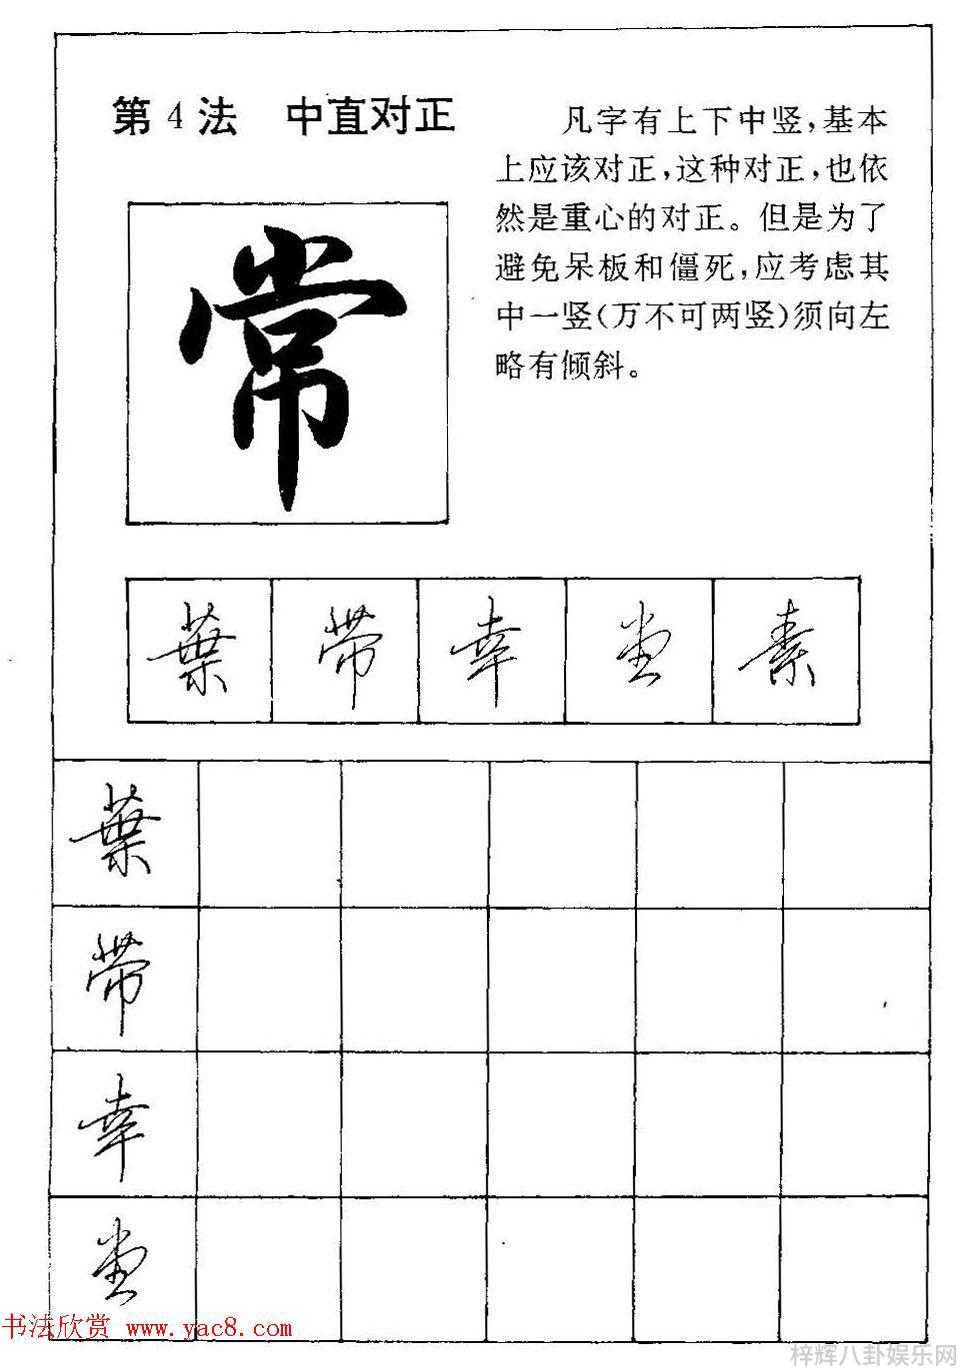 第4法　中直对正
凡字有上下中竖，基本
上应该对正，这种对正，也依
然是重心的对正。但是为了
避免呆板和僵死，应考虑其
中一竖（万不可两竖）须向左
略有倾斜。
常
葉 带 幸 堂 素
葉
带
幸
堂
书法欣赏 www.yac8.com
梓辉八卦娱乐网